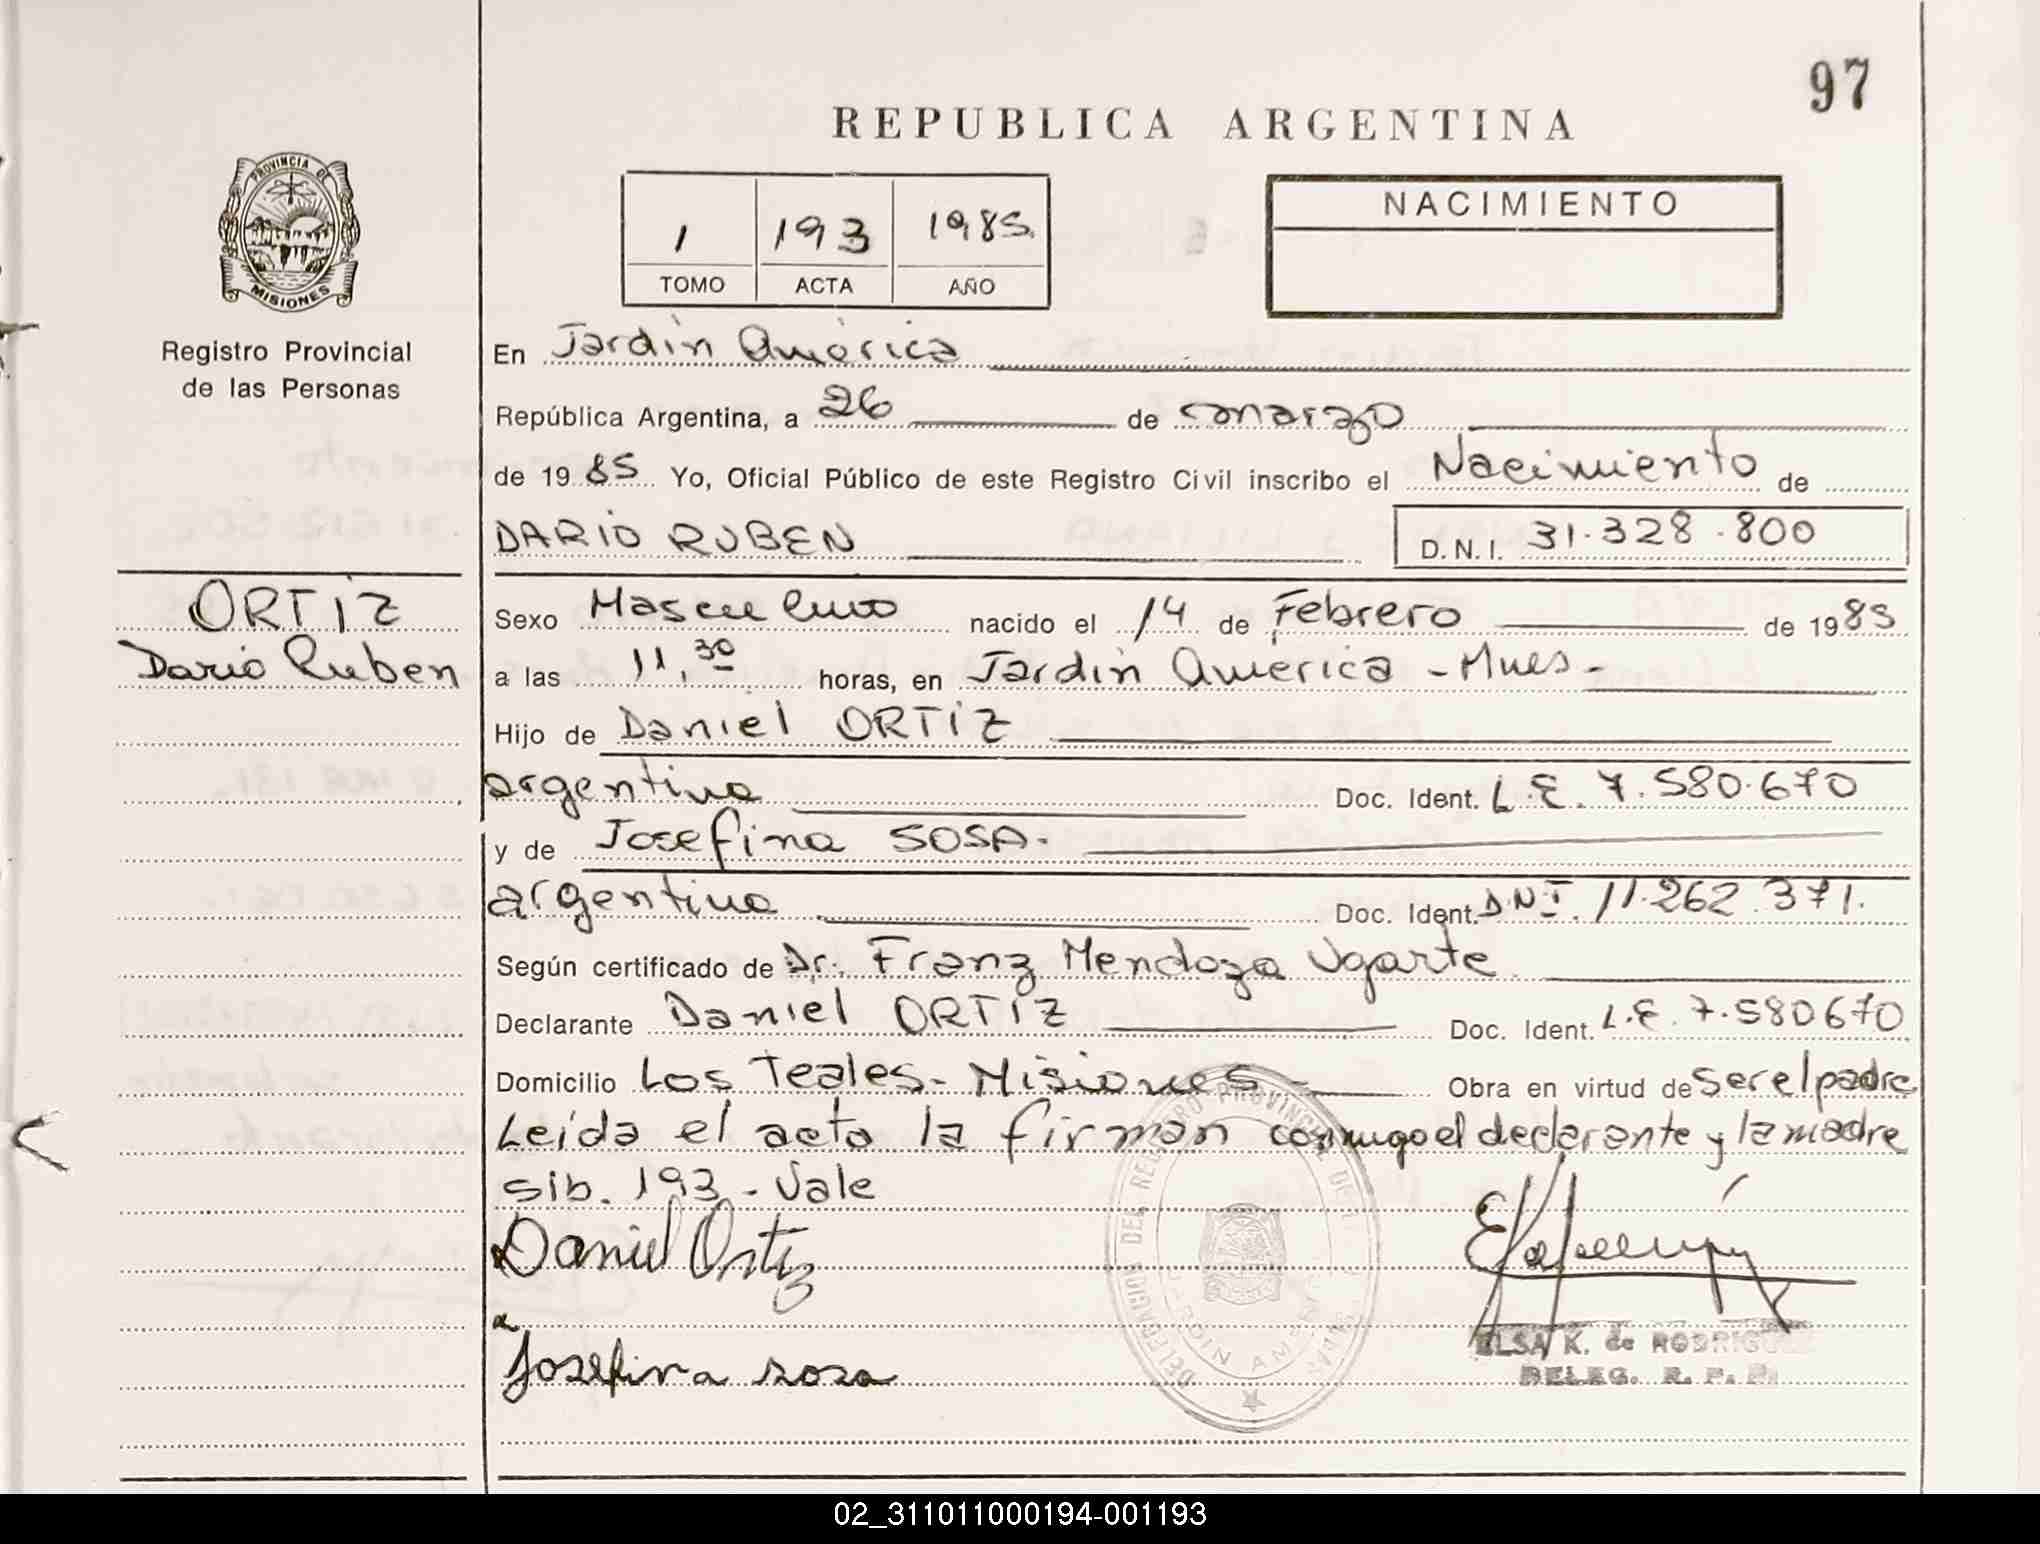 97
REPUBLICA ARGENTINA
PROVINCIA DE
MISIONES
Registro Provincial
de las Personas
1 193 1985
TOMO ACTA AÑO
NACIMIENTO
En Jardín América
República Argentina, a 26 de marzo
de 1985 Yo, Oficial Público de este Registro Civil inscribo el Nacimiento de
DARIO RUBEN D.N.I. 31.328.800
ORTIZ
Dario Ruben
Sexo Masculino nacido el 14 de Febrero de 1985
a las 11,30 horas, en Jardín América - Mnes-
Hijo de Daniel ORTIZ
argentino Doc. Ident. L.E. 7.580.670
y de Josefina SOSA.
argentina Doc. Ident. D.N.I. 11.262.371.
Según certificado de Dr. Franz Mendoza Ugarte
Declarante Daniel ORTIZ Doc. Ident. L.E. 7.580670
Domicilio Los Teales - Misiones - Obra en virtud de ser el padre
Leída el acta la firman conmigo el declarante y la madre
sib. 193 - Vale
Daniel Ortiz
Josefina sosa
ELSA K. de RODRIGU
DELEG. R. P. P.
02_311011000194-001193